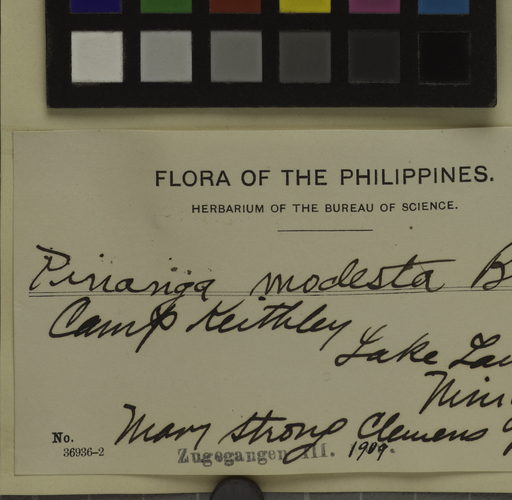 FLORA OF THE PHILIPPINES.
HERBARIUM OF THE BUREAU OF SCIENCE.
Pinanga modesta B
Camp Keithley
Lake La
No. Mary Strong Clemens
36936-2
Zugegangen III. 1909.